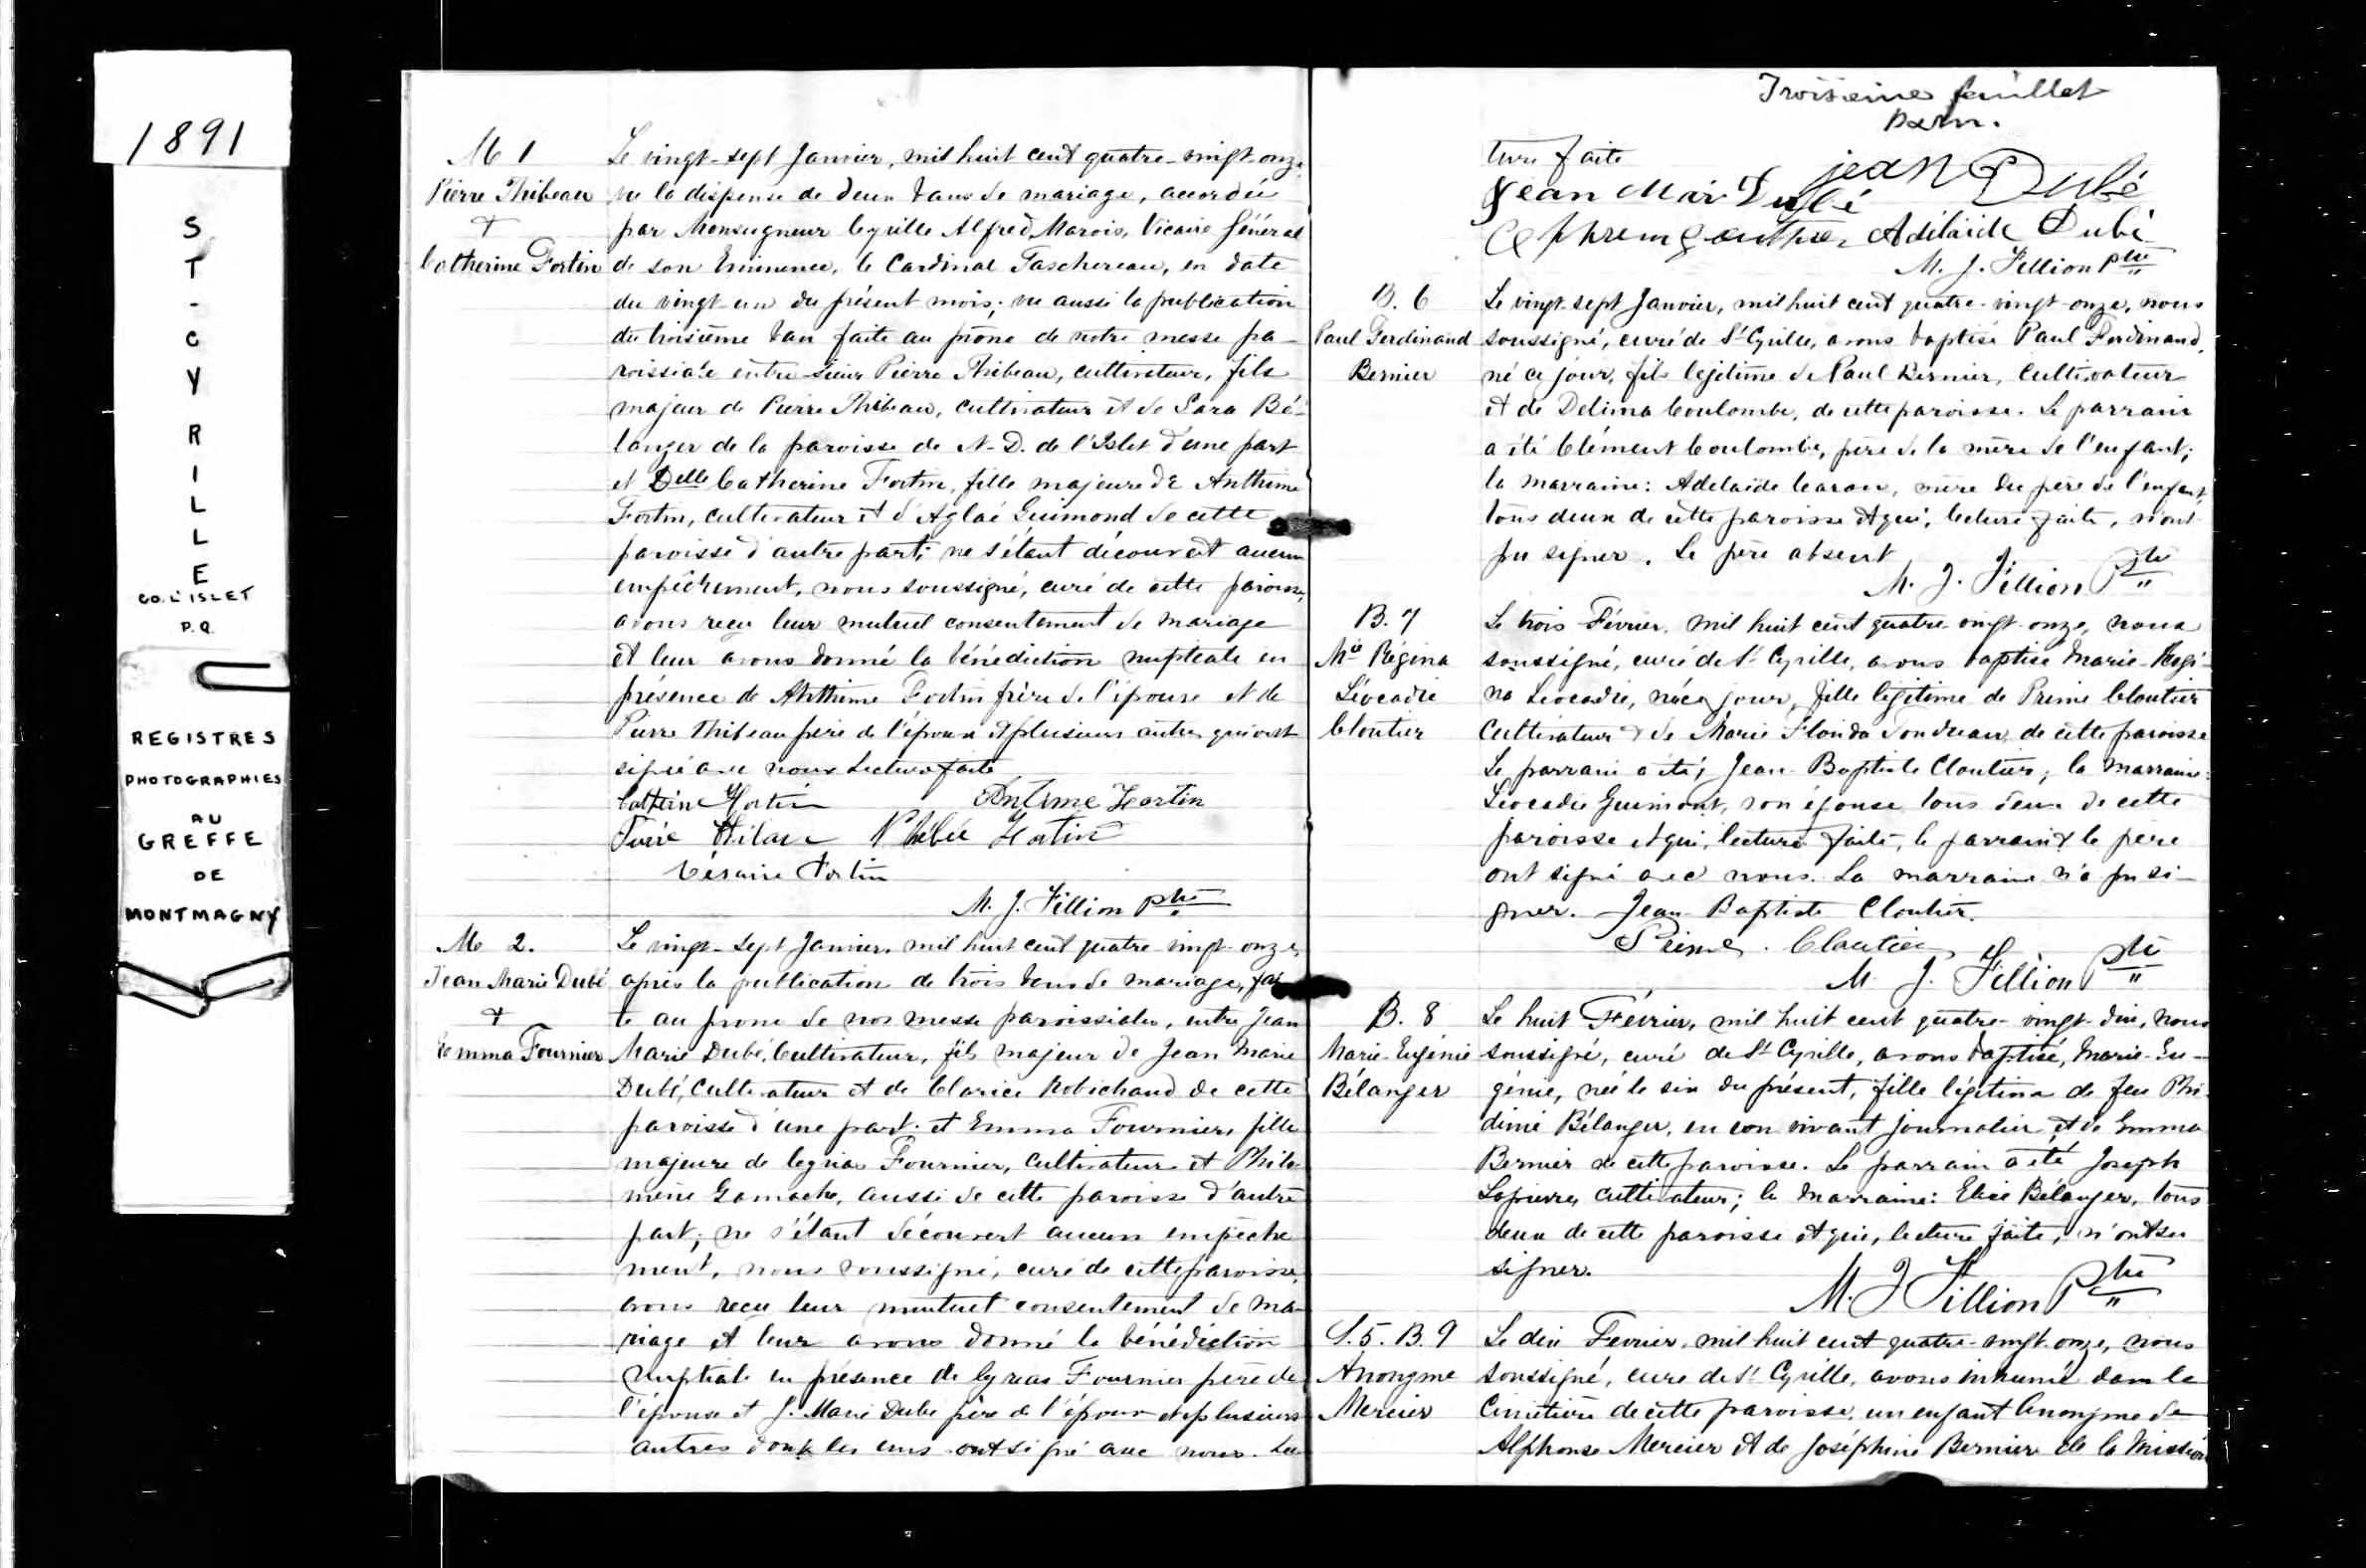 1891
S
T
-
C
Y
R
I
L
L
E
CO. L'ISLET
P.Q.
REGISTRES
PHOTOGRAPHIES
AU
GREFFE
DE
MONTMAGNY
M 1
Pierre Thibeau
+
Catherine Fortin
Le vingt-sept Janvier, mil huit cent quatre-vingt-onze,
vu la dispense de deux bans de mariage, accordée
par Monseigneur Cyrille Alfred Marois, Vicaire Général
de son Eminence, le Cardinal Taschereau, en date
du vingt-un du présent mois; vu aussi la publication
du troisième ban faite au prône de notre messe pa-
roissiale entre Sieur Pierre Thibeau, cultivateur, fils
majeur de Pierre Thibeau, cultivateur et de Sara Bé-
langer de la paroisse de N-D. de l'Islet d'une part
et Delle Catherine Fortin, fille majeure de Anthime
Fortin, cultivateur et d'Aglaé Guimond de cette
paroisse d'autre part; ne s'étant découvert aucun
empêchement, nous soussigné, curé de cette paroisse,
avons reçu leur mutuel consentement de mariage
et leur avons donné la bénédiction nuptiale en
présence de Anthime Fortin frère de l'épouse et de
Pierre Thibeau père de l'époux et plusieurs autres qui ont
signé avec nous Lecture faite
Catherine Fortin Antime Fortin
Phébée Fortin
Césaire Fortin
M. J. Fillion Ptre
M 2.
Jean Marie Dubé
+
Emma Fournier
Le vingt-sept Janvier, mil huit cent quatre-vingt-onze,
après la publication de trois bans de mariage, fai
te au prone de nos messes paroissiales, entre Jean
Marie Dubé, Cultivateur, fils majeur de Jean Marie
Dubé, Cultivateur et de Clarice Robichaud de cette
paroisse d'une part. et Emma Fournier, fille
majeure de Fournier, Cultivateur et Philo
mène Gamache, aussi de cette paroisse d'autre
part; ne s'étant découvert aucun empêche
ment, nous soussigné, curé de cette paroisse,
avons reçu leur mutuel consentement de ma-
riage et leur avons donné la bénédiction
nuptiale en présence de Fournier père de
l'épouse et J. Marie Dubé père de l'époux et plusieurs
autres dont les uns ont signé avec nous. Lec
Troisième feuillet
ture faite
jean Dubé
Jean Mari Dubé
Adélaide Dubé
M. J. Fillion Ptre
B. 6
Paul Ferdinand
Bernier
Le vingt-sept Janvier, mil huit cent quatre-vingt-onze, nous
soussigné, curé de St-Cyrille, avons baptisé Paul Ferdinand,
né ce jour, fils légitime de Paul Bernier, Cultivateur
et de Delima Coulombe, de cette paroisse. Le parrain
a été Clément Coulombe, père de la mère de l'enfant;
la marraine: Adelaide Caron, mère du père de l'enfant
tous deux de cette paroisse et qui, lecture faite, n'ont
pu signer. Le père absent
M. J. Fillion Ptre
B. 7
Mie Régina
Léocadie
Cloutier
Le trois Février, mil huit cent quatre-vingt-onze, nous
soussigné, curé de St Cyrille, avons baptisé Marie-Régi-
na Léocadie, née ce jour, fille légitime de Prime Cloutier
Cultivateur & de Marie Florida de cette paroisse
Le parrain a été, Jean-Baptiste Cloutier; la marraine:
Léocadie Guimont, son épouse tous deux de cette
paroisse et qui, lecture faite, le parrain & le père
ont signé avec nous. La marraine n'a pu si-
gner. Jean-Baptiste Cloutier.
Prime. Cloutier
M. J. Fillion Ptre
B. 8
Marie-Eugénie
Bélanger
Le huit Février, mil huit cent quatre-vingt-dix, nous
soussigné, curé de St Cyrille, avons baptisé, Marie-Eu-
génie, née le six du présent, fille légitime de feu Phi
dime Bélanger, en son vivant journalier et de Emma
Bernier de cette paroisse. Le parrain a été Joseph
Lapierre, cultivateur; la marraine: Elise Bélanger, tous
deux de cette paroisse et qui, lecture faite, n'ont su
signer.
M. J. Fillion Ptre
S. 5. B. 9
Anonyme
Mercier
Le dix Fevrier, mil huit cent quatre-vingt-onze, nous
soussigné, curé de St Cyrille, avons inhumé dans le
Cimetière de cette paroisse, un enfant Anonyme de
Alphonse Mercier et de Joséphine Bernier de la Mission